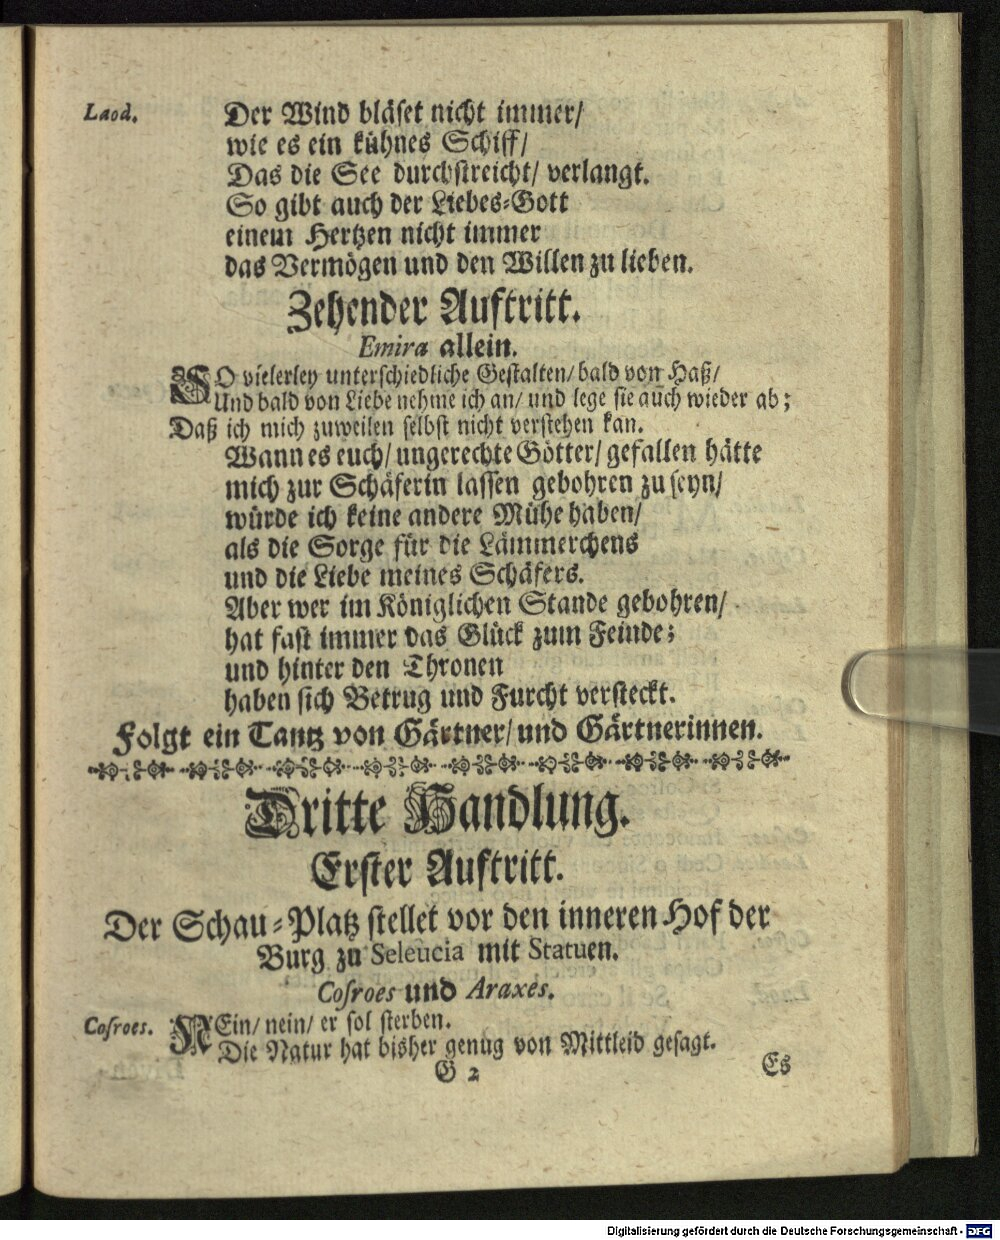 Laod. Der Wind bläset nicht immer/
wie es ein kühnes Schiff/
Das die See durchstreicht/ verlangt.
So gibt auch der Liebes-Gott
einem Hertzen nicht immer
das Vermögen und den Willen zu lieben.
Zehender Auftritt.
Emira allein.
SO vielerley unterschiedliche Gestalten/ bald von Haß/
Und bald von Liebe nehme ich an/ und lege sie auch wieder ab;
Daß ich mich zuweilen selbst nicht verstehen kan.
Wann es euch/ ungerechte Götter/ gefallen hätte
mich zur Schäferin lassen gebohren zu seyn/
würde ich keine andere Mühe haben/
als die Sorge für die Lämmerchens
und die Liebe meines Schäfers.
Aber wer im Königlichen Stande gebohren/
hat fast immer das Glück zum Feinde;
und hinter den Thronen
haben sich Betrug und Furcht versteckt.
Folgt ein Tantz von Gärtner/ und Gärtnerinnen.
Dritte Handlung.
Erster Auftritt.
Der Schau-Platz stellet vor den inneren Hof der
Burg zu Seleucia mit Statuen.
Cosroes und Araxes.
Cosroes. NEin/ nein/ er sol sterben.
Die Natur hat bisher genug von Mittleid gesagt.
G 2 Es
Digitalisierung gefördert durch die Deutsche Forschungsgemeinschaft - DFG